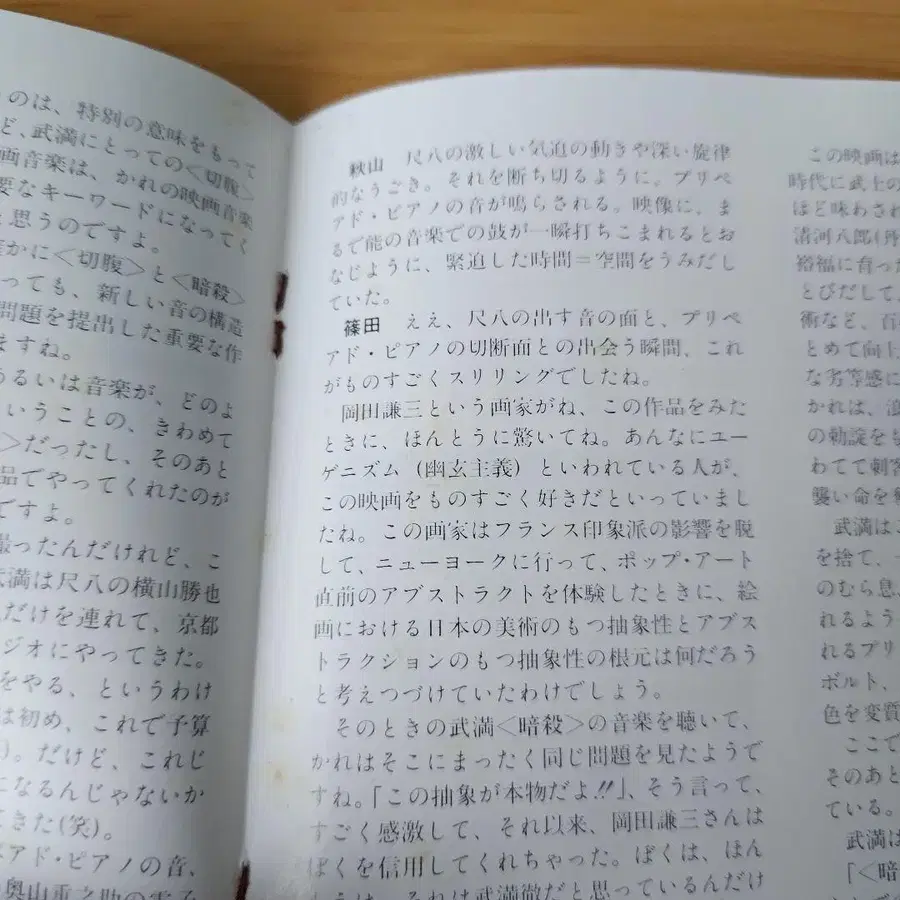 のは、特別の意味をもって
ど、武満にとっての＜切腹＞
画音楽は、かれの映画音楽
要なキーワードになってく
と思うのですよ。
かに＜切腹＞と＜暗殺＞
っても、新しい音の構造
問題を提出した重要な作
ますね。
あるいは音楽が、どのよ
いうことの、きわめて
＞だったし、そのあと
品でやってくれたのが
ですよ。
撮ったんだけれど、こ
武満は尺八の横山勝也
だけを連れて、京都
ジオにやってきた。
をやる、というわけ
は初め、これで予算
)。だけど、これじ
になるんじゃないか
てきた(笑)。
アド・ピアノの音、
奥山重之助の電子
秋山　尺八の激しい気迫の動きや深い旋律
的なうごき。それを断ち切るように。プリペ
アド・ピアノの音が鳴らされる。映像に、ま
るで能の音楽での鼓が一瞬打ちこまれるとお
なじように、緊迫した時間＝空間をうみだし
ていた。
篠田　ええ、尺八の出す音の面と、プリペ
アド・ピアノの切断面との出会う瞬間、これ
がものすごくスリリングでしたね。
岡田謙三という画家がね、この作品をみた
ときに、ほんとうに驚いてね。あんなにユー
ゲニズム（幽玄主義）といわれている人が、
この映画をものすごく好きだといっていまし
たね。この画家はフランス印象派の影響を脱
して、ニューヨークに行って、ポップ・アート
直前のアブストラクトを体験したときに、絵
画における日本の美術のもつ抽象性とアブス
トラクションのもつ抽象性の根元は何だろう
と考えつづけていたわけでしょう。
そのときの武満＜暗殺＞の音楽を聴いて、
かれはそこにまったく同じ問題を見たようで
すね。「この抽象が本物だよ!!」、そう言って、
すごく感激して、それ以来、岡田謙三さんは
ぼくを信用してくれちゃった。ぼくは、ほん
とうは、それは武満徹だと思っているんだけ
この映画は
時代に武士の
ほど味わされ
清河八郎(丹
裕福に育った
とびだして、
術など、百
とめて向上
な劣等感に
かれは、浪
の勅諚をも
わてて刺客
襲い命を
武満はこ
を捨て、
のむら息、
れるよう
れるプリ
ボルト、
色を変質
ここで
そのあと
ている。
武満は
「＜暗